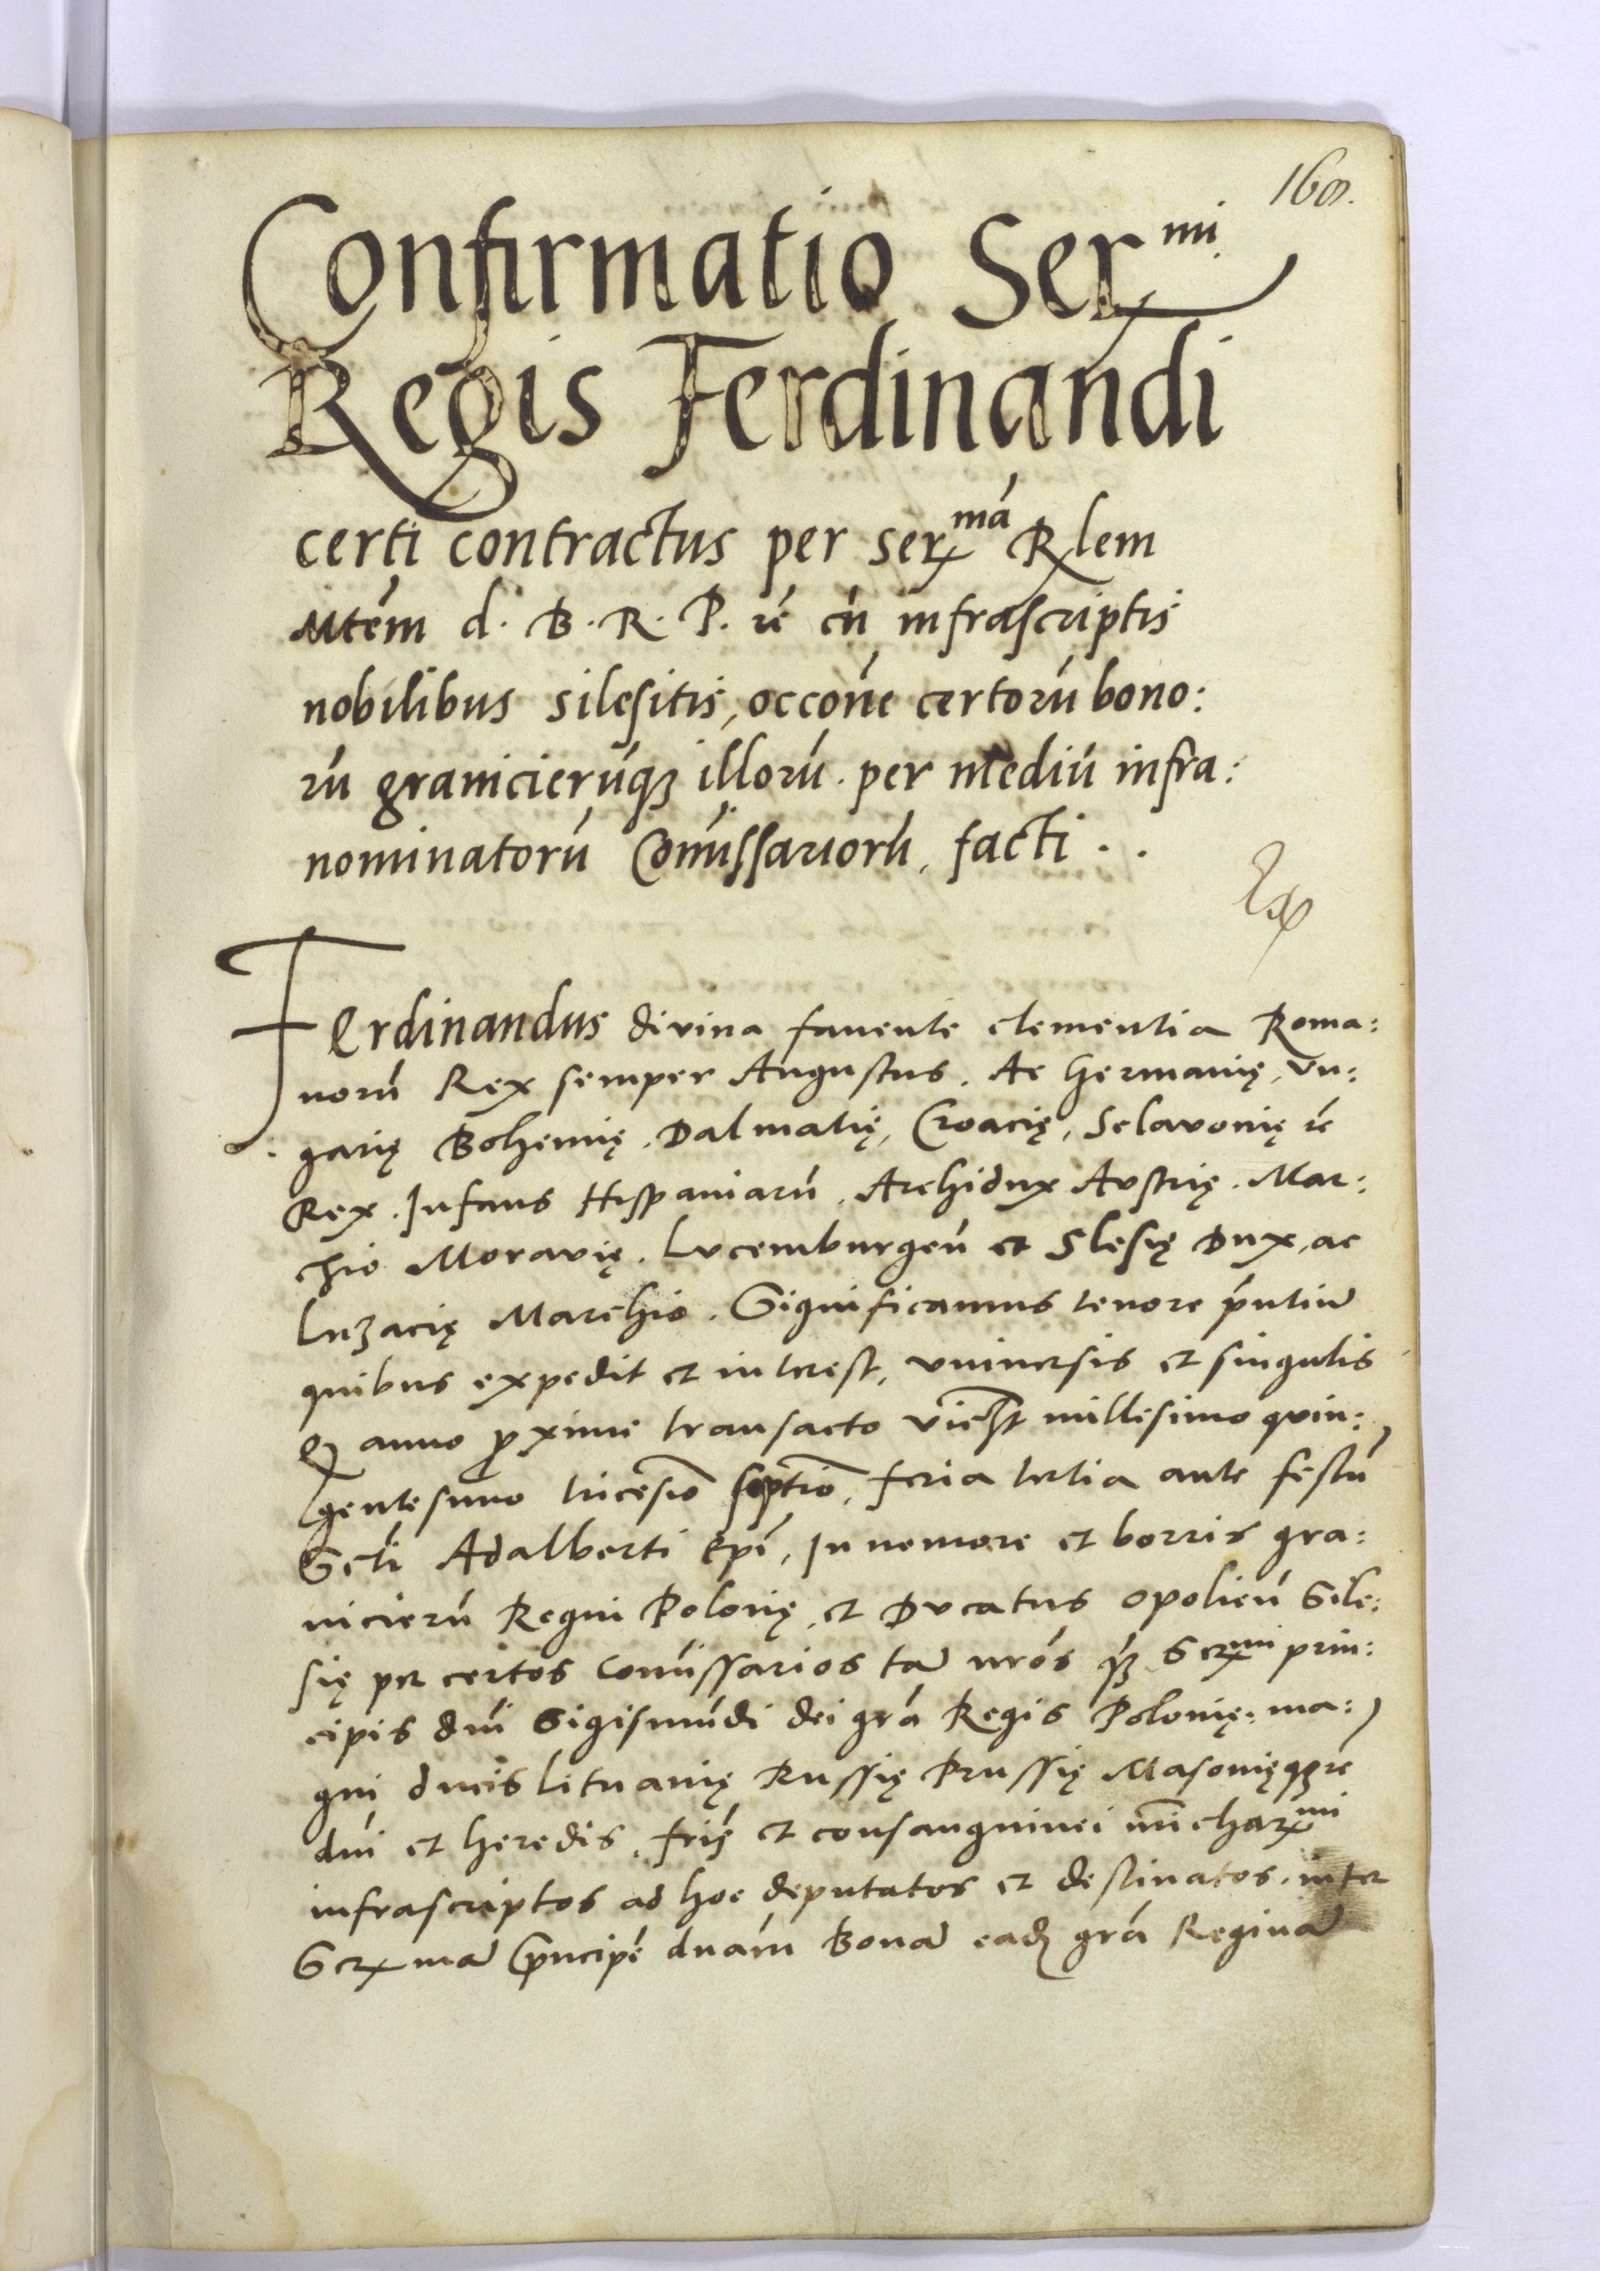 168.
Confirmatio Ser^mi.
Regis Ferdinandi
certi contractus per ser^má Rlem
Mtém d. B. R. P. rē cū infrascriptis
nobilibus silesitis, occone certorū bono:
rū granicierūq3 illorū. per mediū infra:
nominatorū Comissariorū, facti . .
Ferdinandus divina favente clementia Roma:
norū Rex semper Augustus. Ac Germanię, Vn:
garię Bohemię. Dalmatię, Croacię, Sclavonię rē
Rex. Infans Hispaniarū. Archidux Avstrię. Mar:
chio Moravię. Lvcemburgen̄ et Slesię Dux, ac
Luzacię Marchio. Significamus tenore p̄ntiū
quibus expedit et interest, vniversis et singulis
anno proxime transacto millesimo qvin:
gentesimo tricesio septio, feria tertia ante festū
Scti Adalberti Epi, In nemore et borris gra:
nicierū Regni Polonię, et Dvcatus Opolien̄ Sile:
się per certos comissarios tā nrōs q3 Ser^mi prin:
cipis dni Sigismūdi dei grā Regis Polonię, ma:
gni ducis Lituanię Russię Prussię Masovięq3 rē
dni et heredis, fris et consanguinei nri char^mi
infrascriptos ad hoc deputatos et destinatos, inter
Sermā Principē dnām Bonā eadē grā Reginā